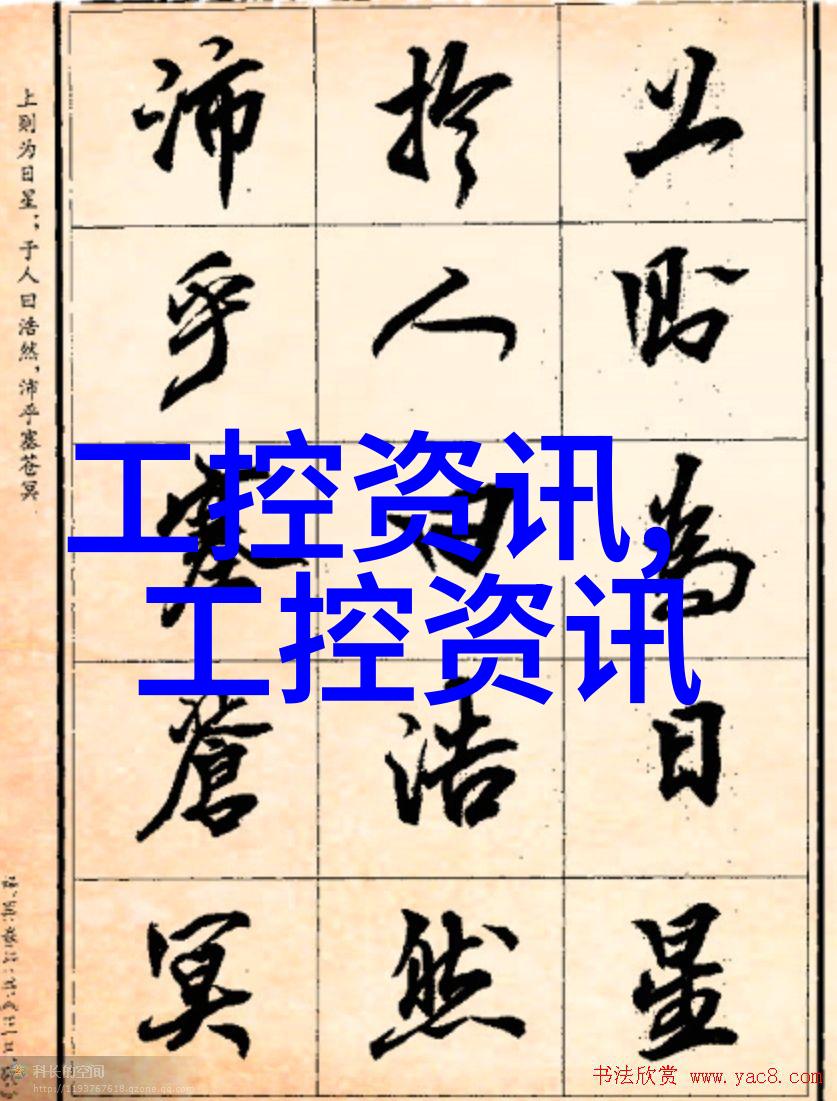 上则为日星；于人曰浩然，沛乎塞苍冥
上則為日星
於人曰浩然
沛乎塞蒼冥
工控资讯，
工控资讯
科长的空间
http://1193767618.qzone.qq.com
书法欣赏 www.yac8.com